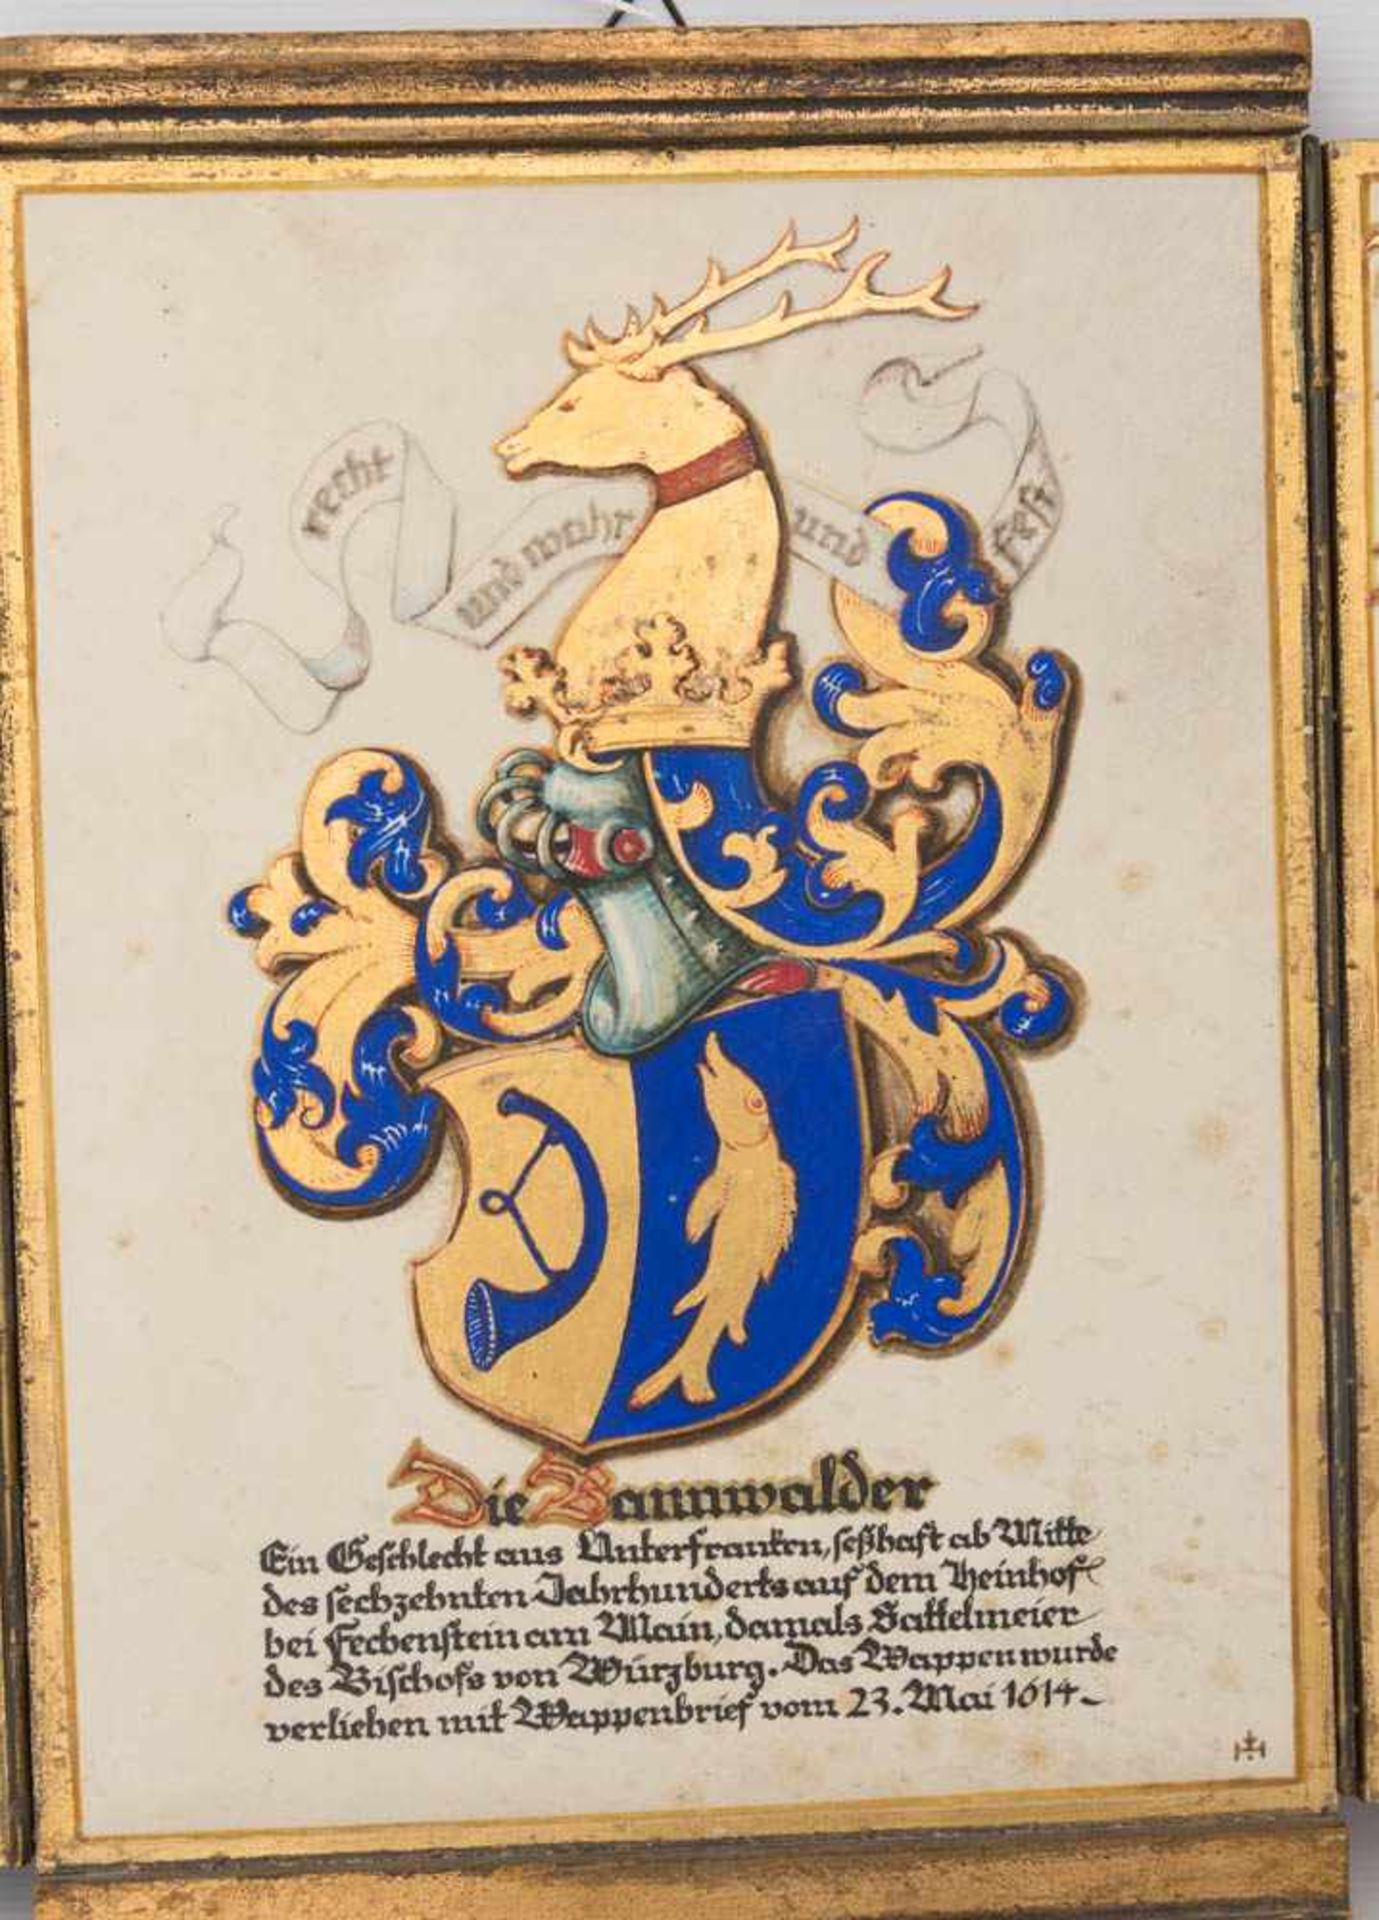 recht
und wahr
und
fest
Die Bannwalder
Ein Geschlecht aus Unterfranken, seßhaft ab Mitte
des sechzehnten Jahrhunderts auf dem Heinhof
bei Fechenstein am Main, damals Sattelmeier
des Bischofs von Würzburg. Das Wappen wurde
verliehen mit Wappenbrief vom 23. Mai 1614.